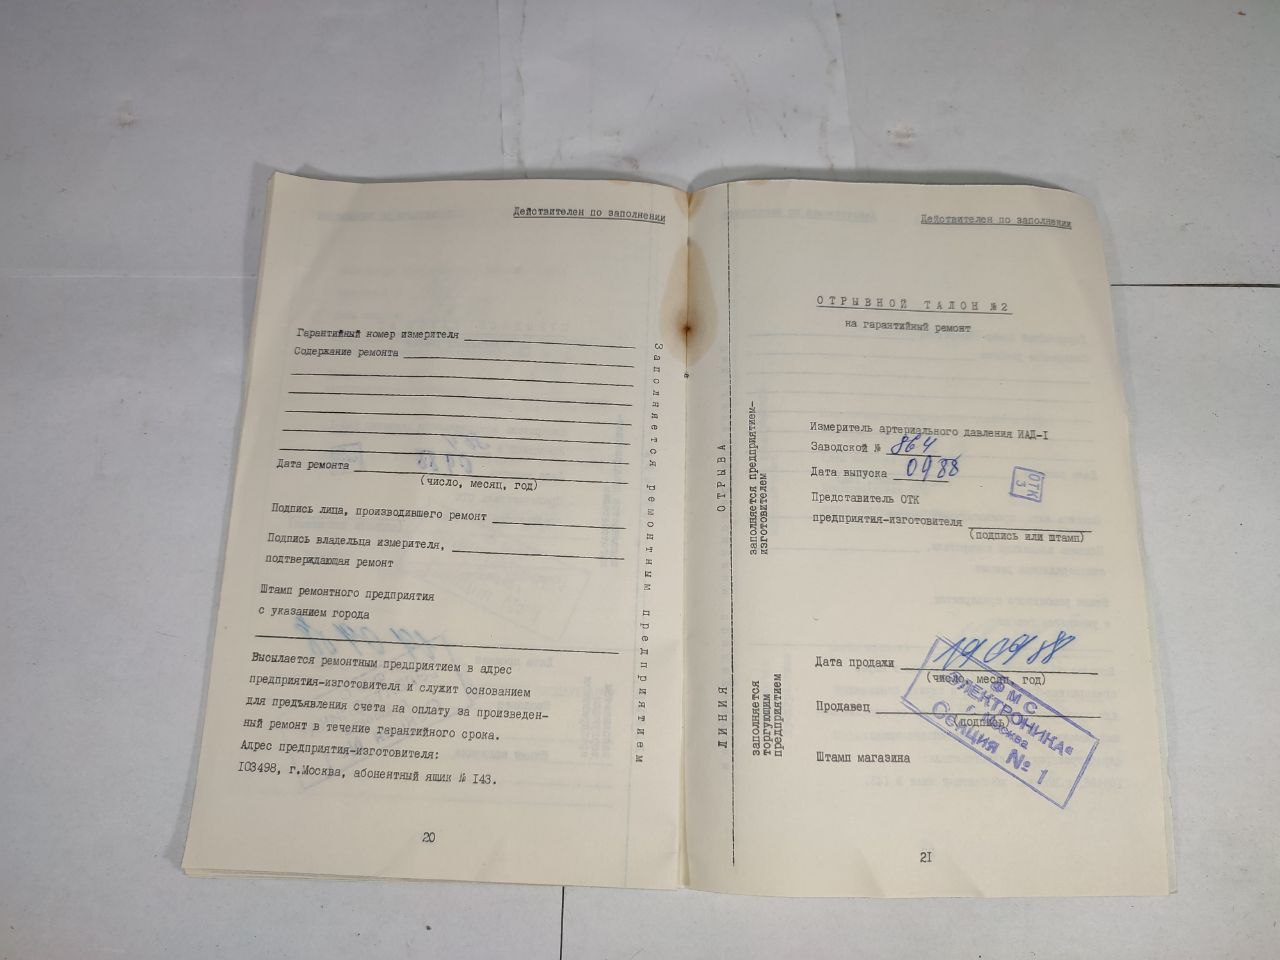 Действителен по заполнении
Гарантийный номер измерителя
Содержание ремонта
Дата ремонта
(число, месяц, год)
Подпись лица, производившего ремонт
Подпись владельца измерителя,
подтверждающая ремонт
Штамп ремонтного предприятия
с указанием города
Высылается ремонтным предприятием в адрес
предприятия-изготовителя и служит основанием
для предъявления счета на оплату за произведен-
ный ремонт в течение гарантийного срока.
Адрес предприятия-изготовителя:
103498, г.Москва, абонентный ящик № 143.
Заполняется ремонтным предприятием
20
Действителен по заполнении
ОТРЫВНОЙ ТАЛОН №2
на гарантийный ремонт
ЛИНИЯ ОТРЫВА
заполняется предприятием-
изготовителем
Измеритель артериального давления ИАД-I
Заводской № 864
Дата выпуска 0988
Представитель ОТК
предприятия-изготовителя
(подпись или штамп)
ОТК
3
заполняется
торгующим
предприятием
Дата продажи 19 09 88
(число, месяц, год)
Продавец
(подпись)
Штамп магазина
ФМС
"ЭЛЕКТРОНИКА"
г. Москва
Секция № 1
2I